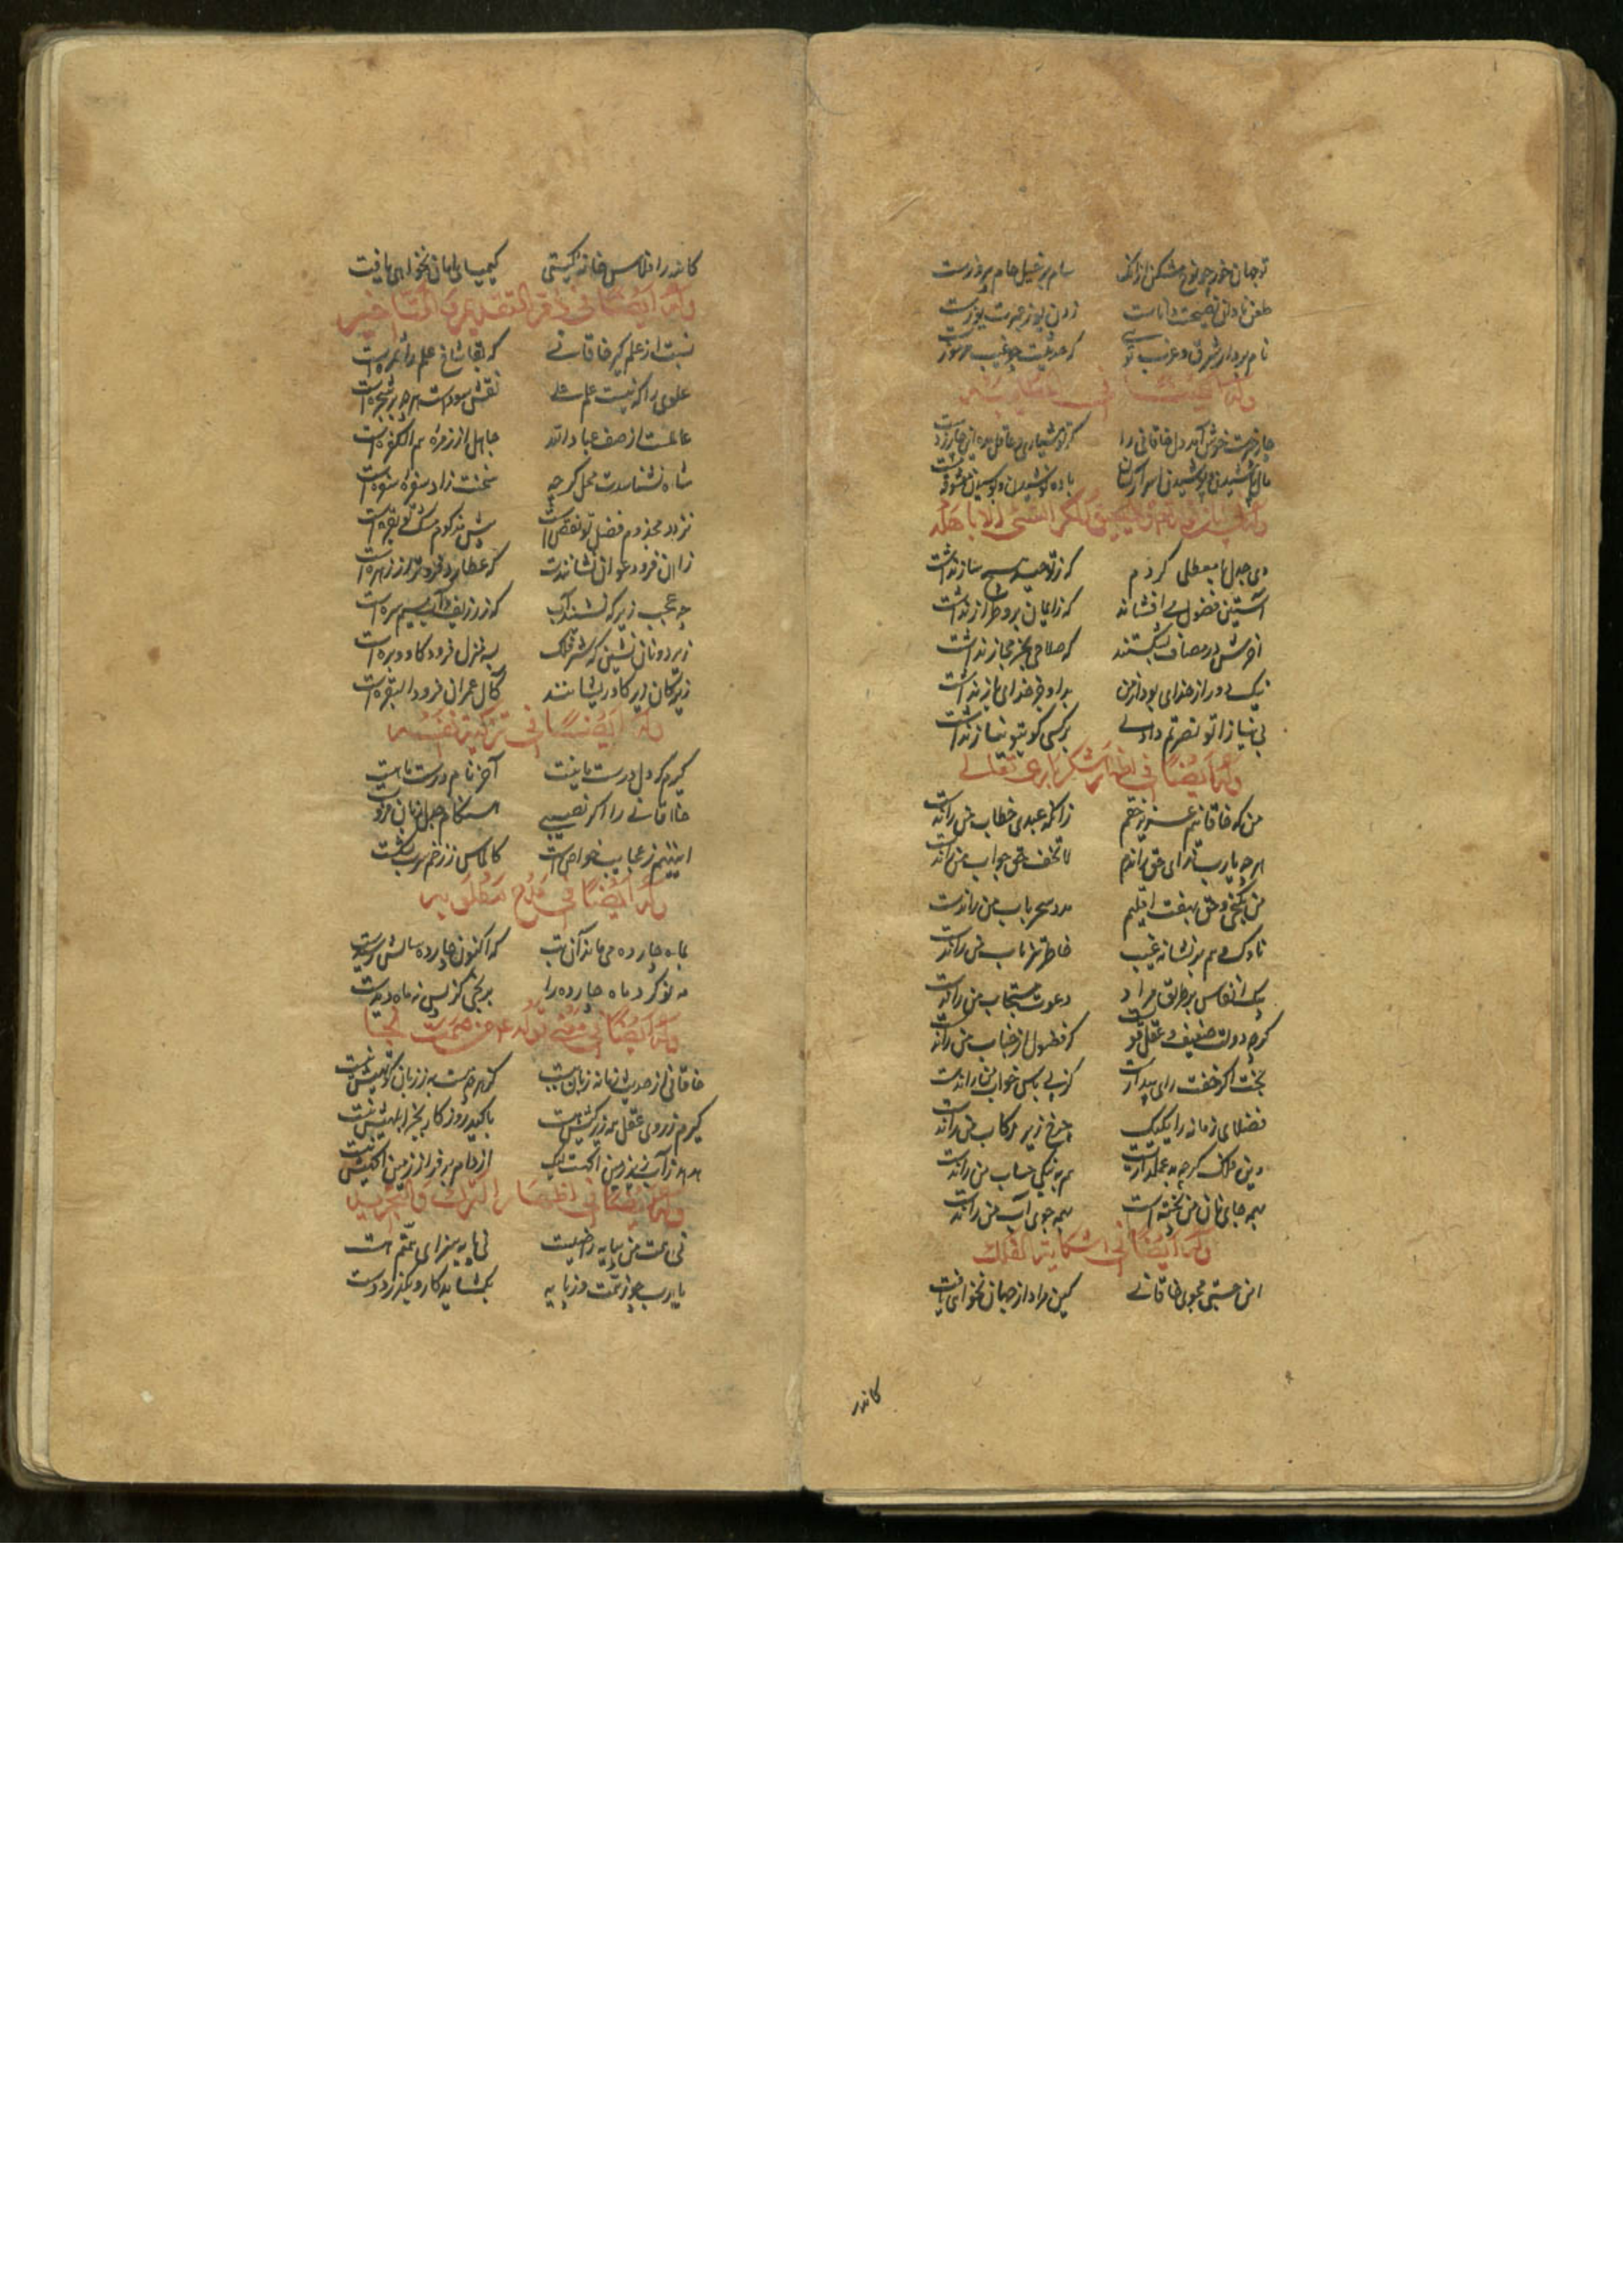 تو جهان خور چو نوح مشکن از آنک سام بر خیل حام پیروزست
طعن نادانی نصیحت داناست زدن یوز عبرت یوزست
نام بردار شرق و غرب تویی که حدیثت چو غیب مرموزست
وله ایضا فی
چار چیزست خوش آمد دل خاقانی را گر تو هشیاری و عاقل مده این چار ز دست
مال پاشیدن و پوشیدن اسرار کسان باده نوشیدن و بوسیدن معشوق
وله
دی جدل با معطلی کردم که ز توحید هیچ ساز نداشت
آستین فضول می افشاند که ز ایمان بر او طراز نداشت
آخرش در مصاف بشکستند که سلاحی بجز مجاز نداشت
نیک دور از خدای بود از من بد او جز خدای باز نداشت
بی نیازا تو نصرتم دادی بر کسی کو بتو نیاز نداشت
وله ایضا فی اظهار شکر باری تعالی
من که خاقانیم عزیز حقم زانکه عبدی خطاب من رانده
هر چه یارب ندای حق راندم لا تخف حق جواب من رانده
من بکنجی و حق بهفت اقلیم مدد سحر باب من راندست
ناوک وهم بر نشانه غیب خاطر تیز ناب من راندست
پیک انفاس بر طریق مراد دعوت مستجاب من راندست
گر چه دولت ضعیف و عقل قویست گر فضول از جناب من راندست
بخت اگر خفت رای بیدارست کز پی پاس خواب من راندست
فضلای زمانه را یکیک چرخ زیر رکاب من راندست
وین فلک گر چه بد عملدارست هم به نیکی حساب من راندست
همه جای نان من پخته است همه جوی آب من راندست
وله ایضا فی شکایة الفلک
این خسیسی مجوی خاقانی کین مراد از جهان نخواهی یافت
کاندر
کاندر افلاس خانه گیتی کیمیای امان نخواهی یافت
وله ایضا فی التقدیم و التاخیر
نسبت از علم گیر خاقانی که بقا شاخ علم را ثمره است
علوی را که نیست علم علی نقش سودست هر چه بر شجره است
عالمست از صف عباد الله جاهل از زمره هم الکفره است
شاه نشناسدت محل گر چه سخنت زاد سفره سفره است
نزد مخدوم فضل تو نقص است پیش مزکوم مشک تو بقره است
زان فرود عوان نشاندت که عطارد فرودتر ز زهره است
چه عجب زیرکه نشیند آب که زر زیف بر سیم سره است
زبر دونان نشین که شیر فلک به منزل فرود گاو و بره است
زیرکان زیر گاو ریشانند کال عمران فرود البقره است
وله ایضا فی تزکیة نفسه
گیرم که دل درست ما نیست آخر نام درست ما هست
خاقانی را اگر نصیبی هنگام جدل زبان فرو بست
اینهم ز عجایب خواص است کالماس ز زخم سرب بشکست
وله ایضا فی مدح مطلوبه
بماه چارده می ماند آن بت که اکنون چارده سالش رسیدست
مه نو گر د ماه چارده را برنجی کز پس نه ماه دیدست
وله ایضا فی
خاقانی از حدیث زمانه زبان ببست کز هر چه هست به ز زبان کوتهیش نیست
گیرم ز روی عقل همه زیرکیش هست با کید روزگار بجز ابلهیش نیست
هدهد ز آب زیر زمین آگهست لیک از دام بر فراز زمین آگهیش نیست
وله ایضا فی اظهار الترک و التجرید
نی همت من بپایه راضیست نی پایه سزای همتم هست
یا رب چو ز همت و ز پایه بگشاید کار و نگذرد دست